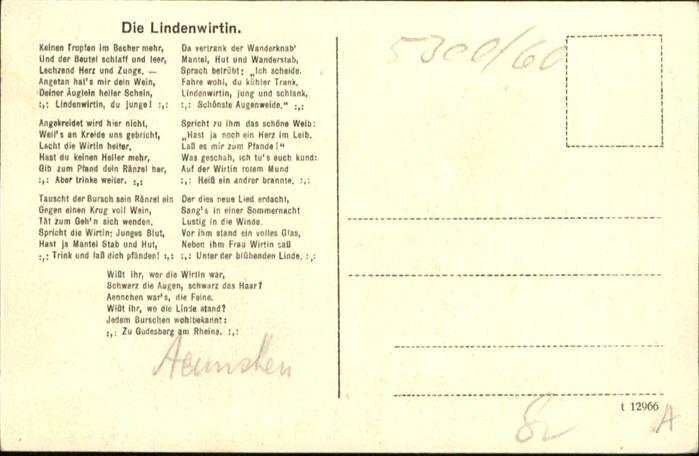 Die Lindenwirtin.
Keinen Tropfen im Becher mehr,
Und der Beutel schlaff und leer,
Lechzend Herz und Zunge. —
Angetan hat's mir dein Wein,
Deiner Äuglein heller Schein,
:,: Lindenwirtin, du junge! :,:
Angekreidet wird hier nicht,
Weil's an Kreide uns gebricht,
Lacht die Wirtin heiter.
Hast du keinen Heller mehr,
Gib zum Pfand dein Ränzel her,
:,: Aber trinke weiter. :,:
Tauscht der Bursch sein Ränzel ein
Gegen einen Krug voll Wein,
Tät zum Geh'n sich wenden.
Spricht die Wirtin: Junges Blut,
Hast ja Mantel Stab und Hut,
:,: Trink und laß dich pfänden! :,:
Da vertrank der Wanderknab'
Mantel, Hut und Wanderstab,
Sprach betrübt: „Ich scheide.
Fahre wohl, du kühler Trank,
Lindenwirtin, jung und schlank,
:,: Schönste Augenweide." :,:
Spricht zu ihm das schöne Weib:
„Hast ja noch ein Herz im Leib,
Laß es mir zum Pfande!"
Was geschah, ich tu's euch kund:
Auf der Wirtin rotem Mund
:,: Heiß ein andrer brannte. :,:
Der dies neue Lied erdacht,
Sang's in einer Sommernacht
Lustig in die Winde.
Vor ihm stand ein volles Glas,
Neben ihm Frau Wirtin saß
:,: Unter der blühenden Linde. :,:
Wißt ihr, wer die Wirtin war,
Schwarz die Augen, schwarz das Haar?
Aennchen war's, die Feine.
Wißt ihr, wo die Linde stand?
Jedem Burschen wohlbekannt:
:,: Zu Godesberg am Rheine. :,:
Aennchen
5300/60
t 12966
A